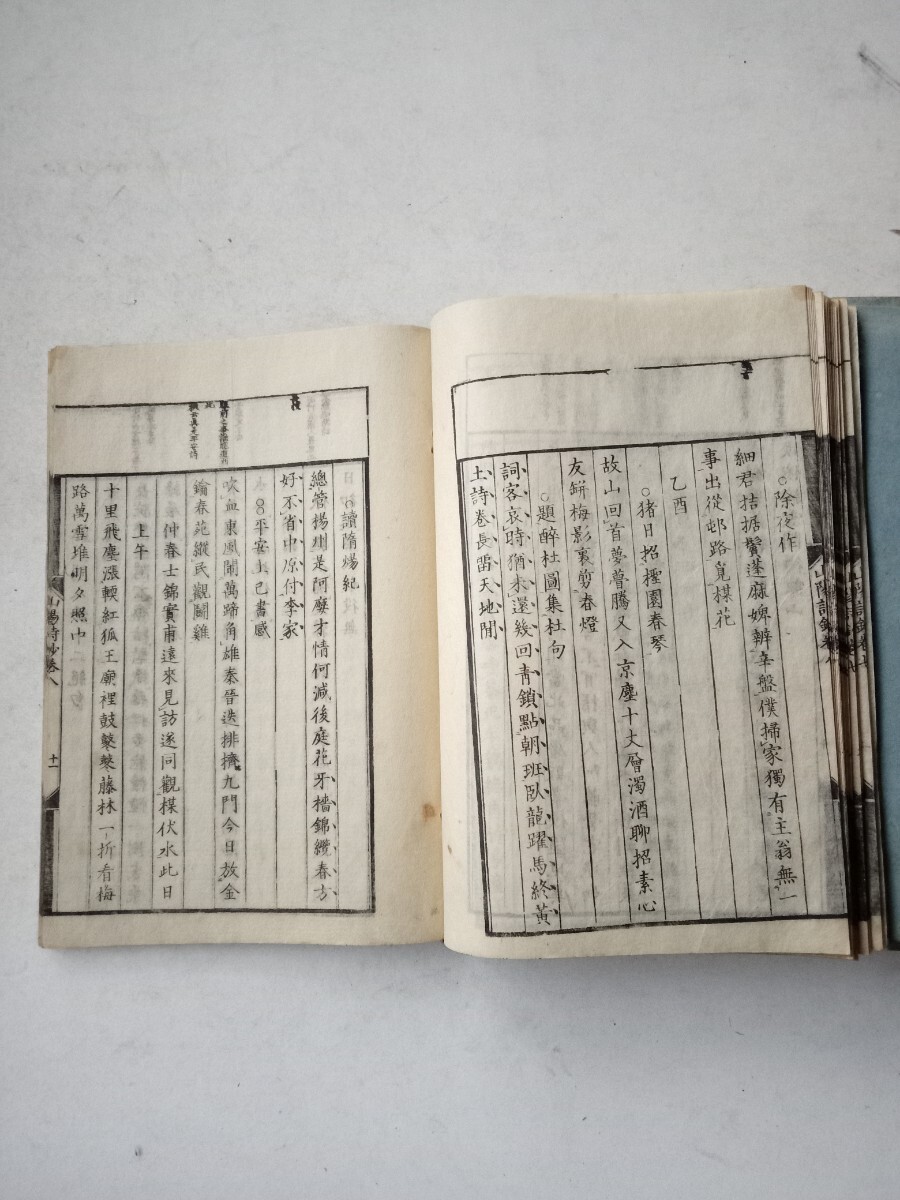 ○除夜作
細君拮据鬢蓬麻婢辦辛盤僕掃家獨有主翁無一
事出從邨路覓楳花
乙酉
○猪日招擢園春琴
故山回首夢曾騰又入京塵十丈層濁酒聊招素心
友缾梅影裏剪春燈
○題醉杜圖集杜句
詞客哀時猶未還幾回青鎖點朝班臥龍躍馬終黃
土詩卷長畱天地閒
讀隋煬紀
總管揚州是阿𡡉才情何減後庭花牙檣錦纜春方
好不省中原付李家
○平安上巳書感
吹血東風鬪萬蹄角雄秦晉迭排擠九門今日放金
鑰春苑縱民觀鬪雞
仲春士錦實甫遠來見訪遂同觀楳伏水此日
上午
十里飛塵漲輭紅狐王廟裡鼓鼕鼕藤林一折看梅
路萬雪堆明夕照中
山陽詩鈔卷八
十一